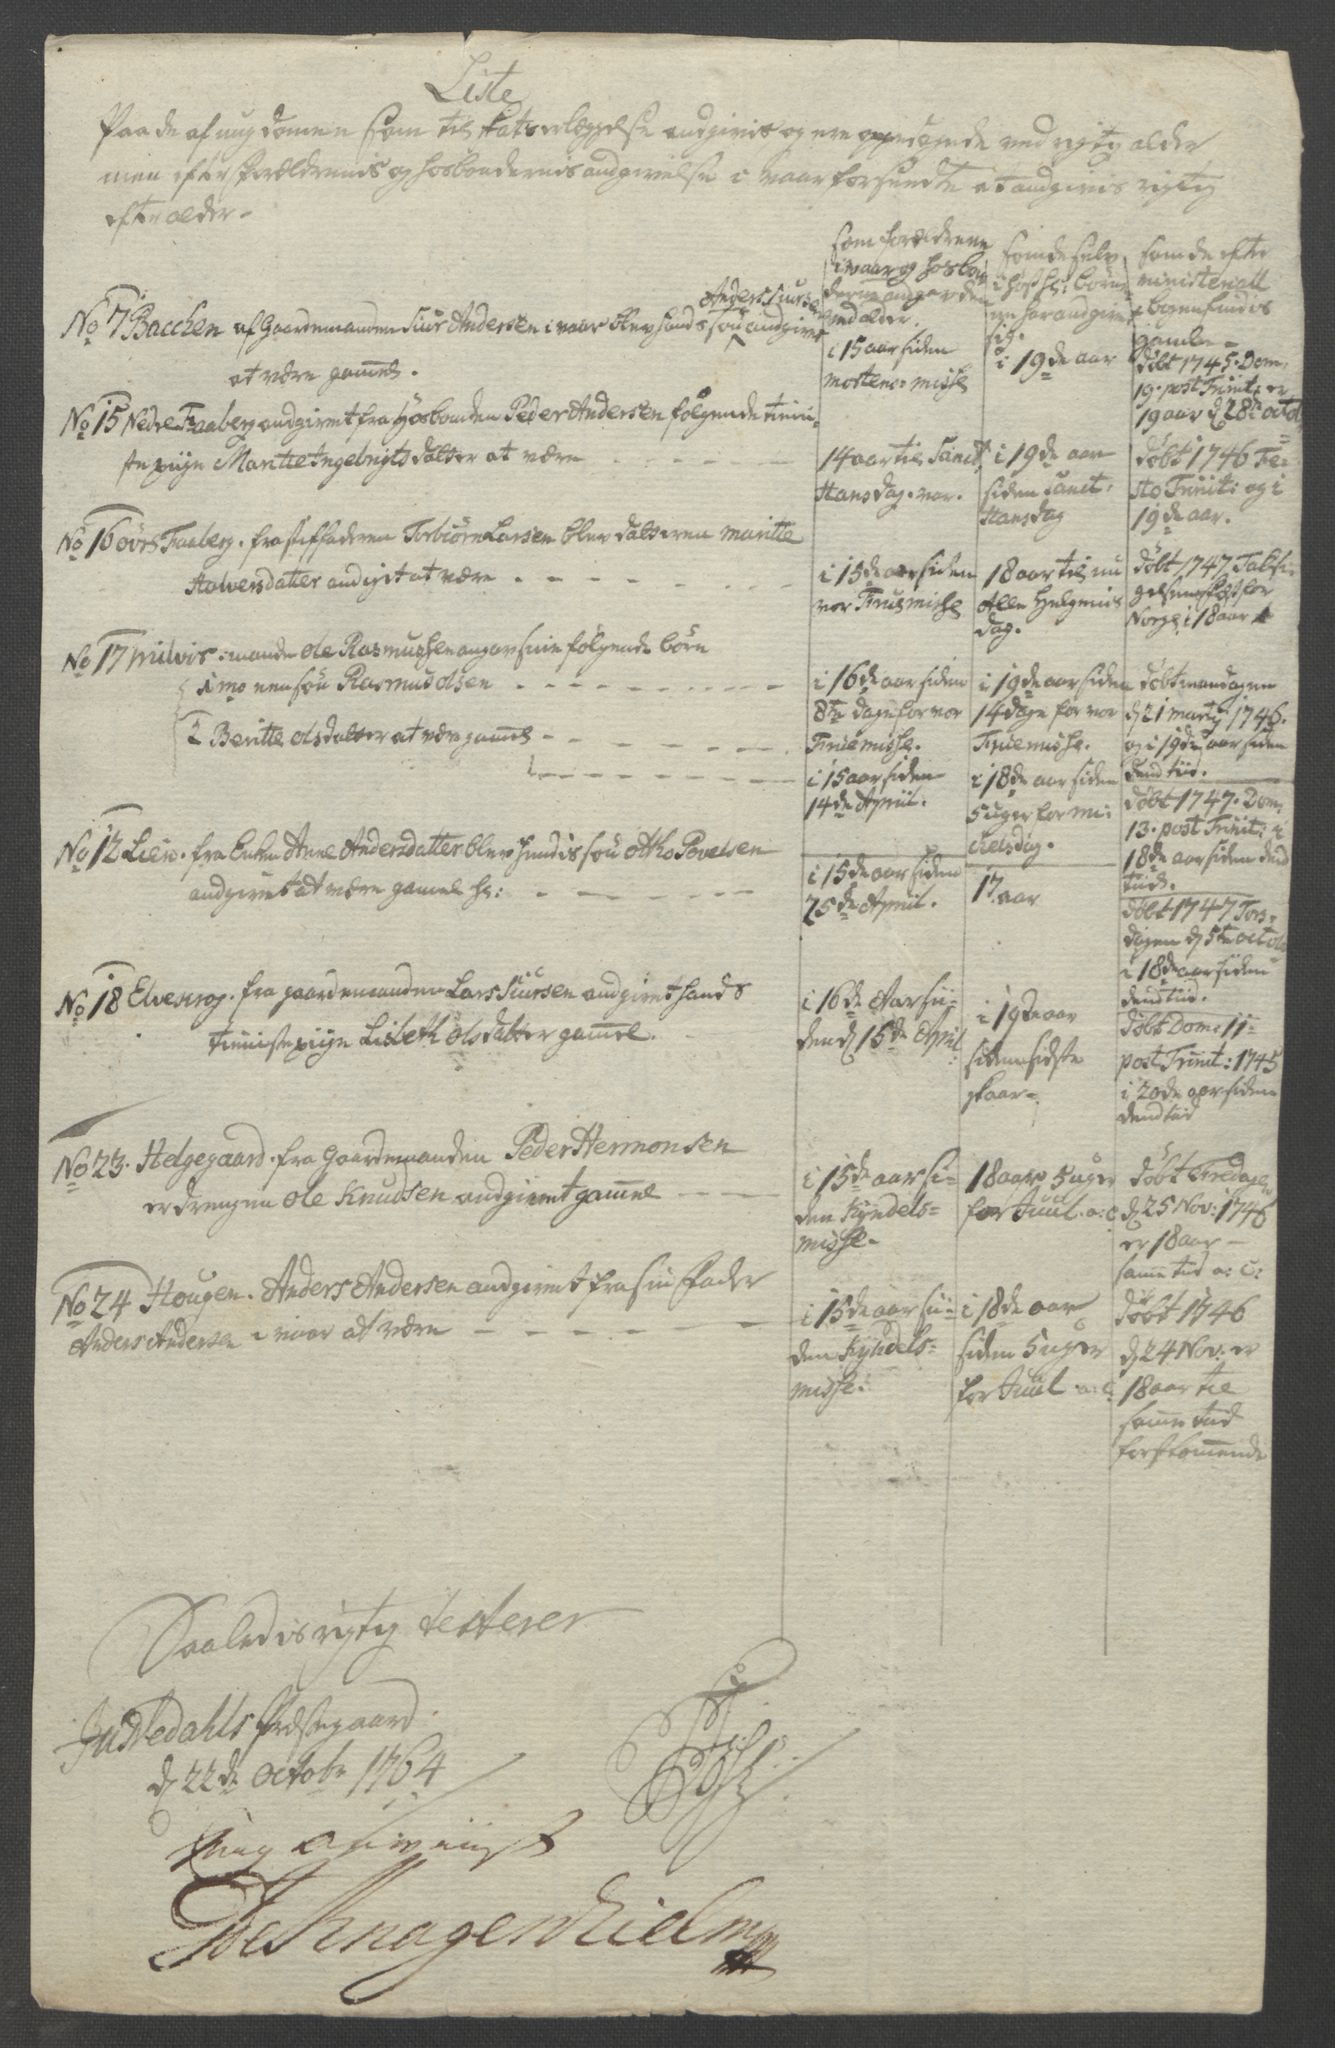 Liste
Paa de af ungdomen som til skatserlæggelse andgivis og ere opvoxende ved rigtig alder
men efter forældrenis og hosbondernis andgivelse i vaar forsundte at andgivis rigtig
efter alder.
som forældrene
i vaar og hosbon
derne angav den
ved alder.
som de selv
i høst hs: børne
ne har andgivet
sig.
som de efter
ministeriall
bogen findis
gamle
Anders Siursen
No 7 Bacchen af Gaardemanden Siur Andersen i vaar blev hands søn andgivet
at være gamel.
i 15 aar siden
mortens: misse
i 19de aar
døbt 1745. Dom:
19. post Trinit: er
19 aar d 28de octob
No 15 Nedre Faaberg andgivet fra Hosbonden Peder Andersen følgende tieni-
ste piige Maritte Ingebrigtsdatter at være
14 aar til Sanct
Hans dag. var.
i 19de aar
siden Sanct:
Hansdag
døbt 1746 Fe-
sto Trinit: og i
19de aar.
No 16 övre Faaberg. fra stiffaderen Torbiörn Larsen blev datteren maritte
Halversdatter andgivt at være
i 15de aar siden
vor Frue misse
18 aar til nu
Alle Helgenis
dag.
døbt 1747 Taksi-
gelsens fest for
Norge, i 18 aar
No 17 Milvir: mande Ole Rasmussen angav sine følgende børn
1mo een søn Rasmus Olsen
i 16de aar siden
8te dage for vor
Fruemisse.
i 19de aar siden
14 dage for vor
Fruemisse.
døbt mandagen
d 21 marty 1746.
og i 19de aar siden
dend tiid.
2 Beritte olsdatter at være gamel
i 15 aar siden
14de Apriil.
i 18de aar siden
5 uger for mi-
chelsdag.
døbt 1747. Dom:
13. post Trinit: i
18de aar siden dend
tiid.
No 12 Lien. fra Enken Anne Andersdatter blev hendis søn Otho Povelsen
andgivet at være gamel hs:
i 15de aar siden
25de Apriil.
17 aar
døbt 1747 Tors-
dagen d 5te octob
i 18de aar siden
dend tiid.
No 18 Elvescrog. fra gaardemanden Lars Siursen andgivet hands
tieniste piige Lisbeth Olsdatter gamel.
i 16de Aar sii-
den d 15de Apriil
i 19de aar
siden sidste
skaar
døbt Dom: 11
post Trinit: 1745
i 20de aar siden
dend tiid
No 23. Helgegaard. fra Gaardemanden Peder Hermonsen
er drengen Ole Knudsen andgivet gamel
i 15de aar si-
den Kyndels-
misse.
18 aar 5 uger
før Juul. a: c
døbt Fredagen
d 25 Nov: 1746
er 18 aar
same tid a: c:
No 24 Hougen. Anders Andersen andgivet fra sin Fader
Anders Andersen i vaar at være
i 15de aar sii-
den Kyndels-
misse.
i 18de aar
siden 5 uger
før Juul a: c
døbt 1746
d 24 Nov: er
18 aar til
same tiid
førstkomende
Saaledis rigtig testerer
Justedahls Præstegaard
d 22de Octobr 1764
Knagenhielm